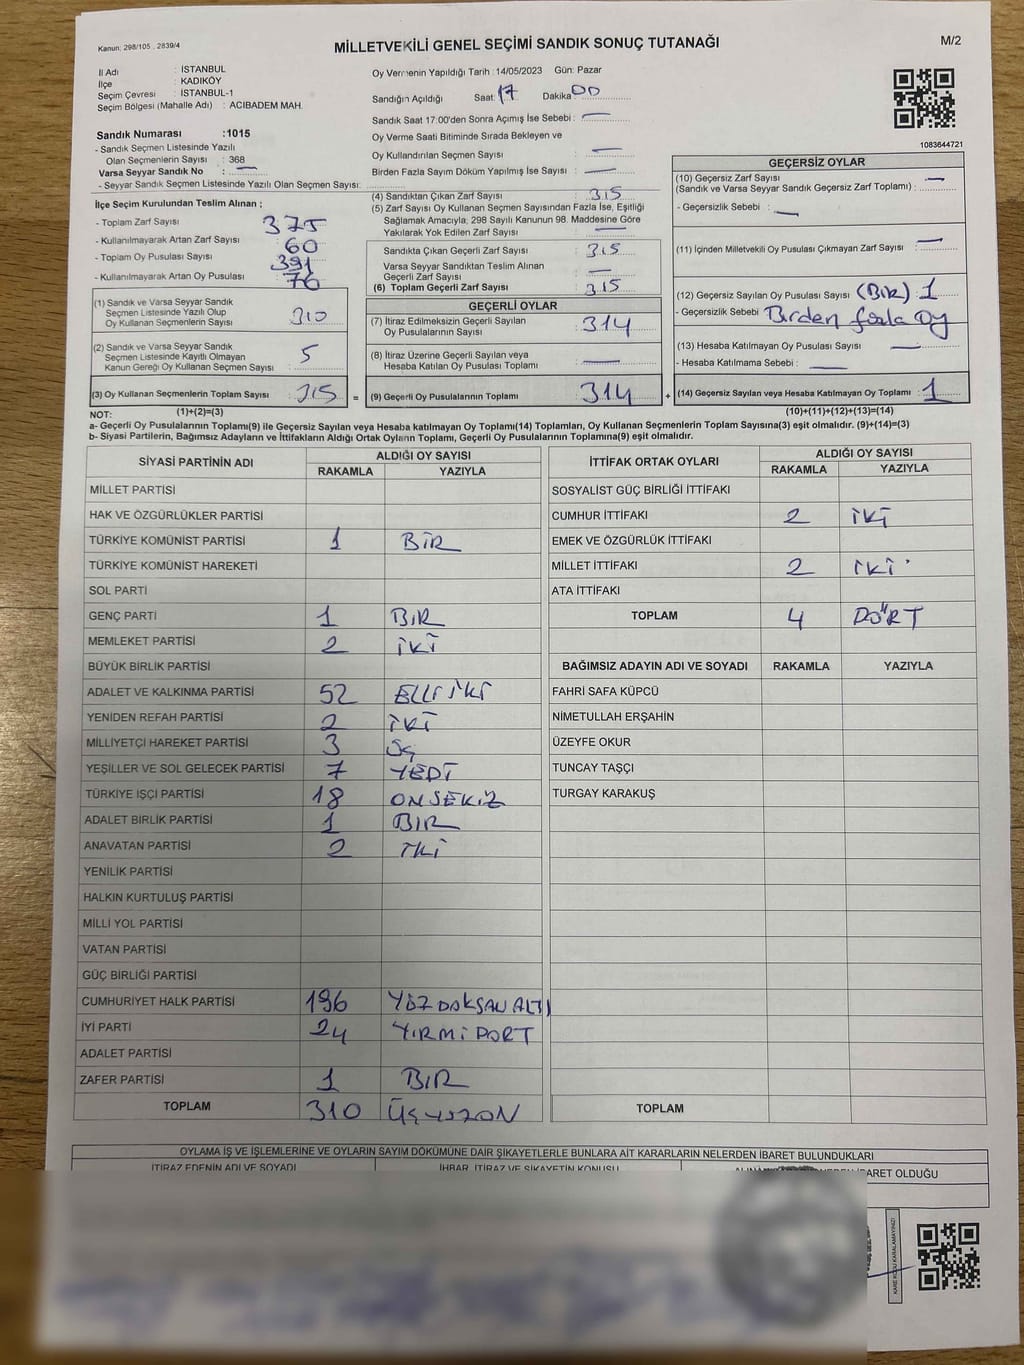 Kanun: 298/105 , 2839/4
MİLLETVEKİLİ GENEL SEÇİMİ SANDIK SONUÇ TUTANAĞI
M/2
İl Adı : İSTANBUL
İlçe : KADIKÖY
Seçim Çevresi : İSTANBUL-1
Seçim Bölgesi (Mahalle Adı) : ACIBADEM MAH.
Sandık Numarası :1015
- Sandık Seçmen Listesinde Yazılı
Olan Seçmenlerin Sayısı : 368
Varsa Seyyar Sandık No : —
- Seyyar Sandık Seçmen Listesinde Yazılı Olan Seçmen Sayısı:
İlçe Seçim Kurulundan Teslim Alınan ;
- Toplam Zarf Sayısı 375
- Kullanılmayarak Artan Zarf Sayısı : 60
- Toplam Oy Pusulası Sayısı 391
- Kullanılmayarak Artan Oy Pusulası : 76
(1) Sandık ve Varsa Seyyar Sandık
Seçmen Listesinde Yazılı Olup
Oy Kullanan Seçmenlerin Sayısı : 310
(2) Sandık ve Varsa Seyyar Sandık
Seçmen Listesinde Kayıtlı Olmayan
Kanun Gereği Oy Kullanan Seçmen Sayısı : 5
(3) Oy Kullanan Seçmenlerin Toplam Sayısı : 315 =
Oy Vermenin Yapıldığı Tarih :14/05/2023 Gün: Pazar
Sandığın Açıldığı Saat: 17 Dakika: 00
Sandık Saat 17:00'den Sonra Açımış İse Sebebi : —
Oy Verme Saati Bitiminde Sırada Bekleyen ve
Oy Kullandırılan Seçmen Sayısı : —
Birden Fazla Sayım Döküm Yapılmış İse Sayısı : —
(4) Sandıktan Çıkan Zarf Sayısı : 315
(5) Zarf Sayısı Oy Kullanan Seçmen Sayısından Fazla İse, Eşitliği
Sağlamak Amacıyla, 298 Sayılı Kanunun 98. Maddesine Göre
Yakılarak Yok Edilen Zarf Sayısı : —
Sandıkta Çıkan Geçerli Zarf Sayısı : 315
Varsa Seyyar Sandıktan Teslim Alınan
Geçerli Zarf Sayısı : —
(6) Toplam Geçerli Zarf Sayısı : 315
GEÇERLİ OYLAR
(7) İtiraz Edilmeksizin Geçerli Sayılan
Oy Pusulalarının Sayısı : 314
(8) İtiraz Üzerine Geçerli Sayılan veya
Hesaba Katılan Oy Pusulası Toplamı : —
(9) Geçerli Oy Pusulalarının Toplamı : 314 +
1083644721
GEÇERSİZ OYLAR
(10) Geçersiz Zarf Sayısı —
(Sandık ve Varsa Seyyar Sandık Geçersiz Zarf Toplamı) :
- Geçersizlik Sebebi : —
(11) İçinden Milletvekili Oy Pusulası Çıkmayan Zarf Sayısı : —
(12) Geçersiz Sayılan Oy Pusulası Sayısı (BİR) 1
- Geçersizlik Sebebi : Birden fazla oy
(13) Hesaba Katılmayan Oy Pusulası Sayısı : —
- Hesaba Katılmama Sebebi : —
(14) Geçersiz Sayılan veya Hesaba Katılmayan Oy Toplamı : 1
NOT: (1)+(2)=(3) (10)+(11)+(12)+(13)=(14)
a- Geçerli Oy Pusulalarının Toplamı(9) ile Geçersiz Sayılan veya hesaba katılmayan Oy Toplamı(14) Toplamları, Oy Kullanan Seçmenlerin Toplam Sayısına(3) eşit olmalıdır. (9)+(14)=(3)
b- Siyasi Partilerin, Bağımsız Adayların ve İttifakların Aldığı Ortak Oyların Toplamı, Geçerli Oy Pusulalarının Toplamına(9) eşit olmalıdır.
SİYASİ PARTİNİN ADI ALDIĞI OY SAYISI
RAKAMLA YAZIYLA
MİLLET PARTİSİ
HAK VE ÖZGÜRLÜKLER PARTİSİ
TÜRKİYE KOMÜNİST PARTİSİ 1 BİR
TÜRKİYE KOMÜNİST HAREKETİ
SOL PARTİ
GENÇ PARTİ 1 BİR
MEMLEKET PARTİSİ 2 İKİ
BÜYÜK BİRLİK PARTİSİ
ADALET VE KALKINMA PARTİSİ 52 ELLİ İKİ
YENİDEN REFAH PARTİSİ 2 İKİ
MİLLİYETÇİ HAREKET PARTİSİ 3 ÜÇ
YEŞİLLER VE SOL GELECEK PARTİSİ 7 YEDİ
TÜRKİYE İŞÇİ PARTİSİ 18 ONSEKİZ
ADALET BİRLİK PARTİSİ 1 BIR
ANAVATAN PARTİSİ 2 İKİ
YENİLİK PARTİSİ
HALKIN KURTULUŞ PARTİSİ
MİLLİ YOL PARTİSİ
VATAN PARTİSİ
GÜÇ BİRLİĞİ PARTİSİ
CUMHURİYET HALK PARTİSİ 196 YÜZ DOKSAN ALTI
İYİ PARTİ 24 YIRMİ DORT
ADALET PARTİSİ
ZAFER PARTİSİ 1 BIR
TOPLAM 310 ÜÇYÜZON
İTTİFAK ORTAK OYLARI ALDIĞI OY SAYISI
RAKAMLA YAZIYLA
SOSYALİST GÜÇ BİRLİĞİ İTTİFAKI
CUMHUR İTTİFAKI 2 İKİ
EMEK VE ÖZGÜRLÜK İTTİFAKI
MİLLET İTTİFAKI 2 İKİ
ATA İTTİFAKI
TOPLAM 4 DÖRT
BAĞIMSIZ ADAYIN ADI VE SOYADI RAKAMLA YAZIYLA
FAHRİ SAFA KÜPCÜ
NİMETULLAH ERŞAHİN
ÜZEYFE OKUR
TUNCAY TAŞÇI
TURGAY KARAKUŞ
TOPLAM
OYLAMA İŞ VE İŞLEMLERİNE VE OYLARIN SAYIM DÖKÜMÜNE DAİR ŞİKAYETLERLE BUNLARA AİT KARARLARIN NELERDEN İBARET BULUNDUKLARI
İTİRAZ EDENİN ADI VE SOYADI İHBAR, İTİRAZ VE ŞİKAYETİN KONUSU NEREDEN İBARET OLDUĞU
KARE KODU KARALAMAYINIZ!